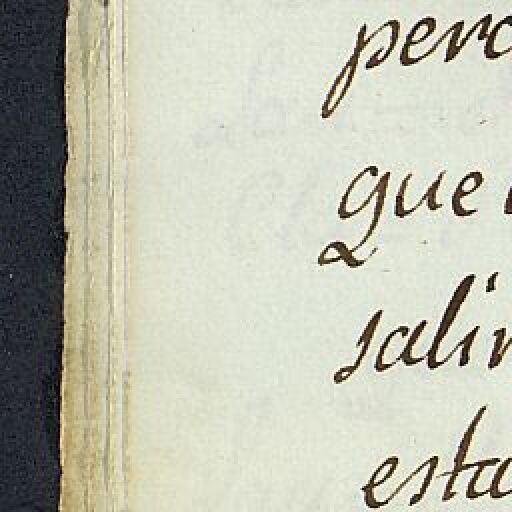 perc
que
salin
esta